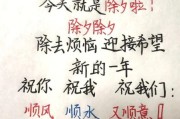 今天就是除夕啦！
除夕除夕
除去烦恼 迎接希望
新的一年
祝你 祝我 祝我们：
顺风 顺水 又顺意！！